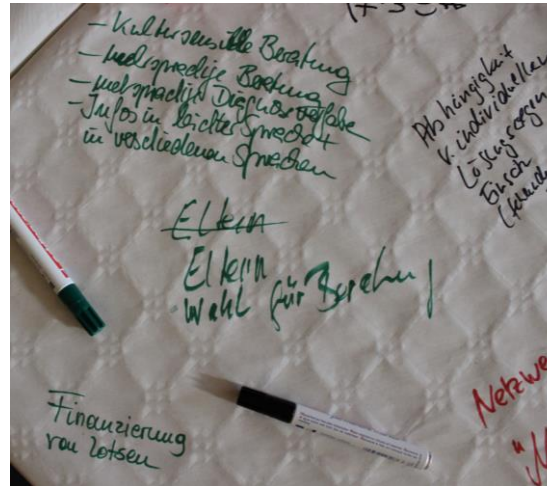 - Kultursensible Beratung
- mehrsprachige Beratung
- mehrsprachige Diagnoseverfahren
- Infos in leichter Sprache +
in verschiedenen Sprachen
Eltern
Eltern
Wahl für Beratung
Finanzierung
von Lotsen
Abhängigkeit
v. individuellen
Netzwe